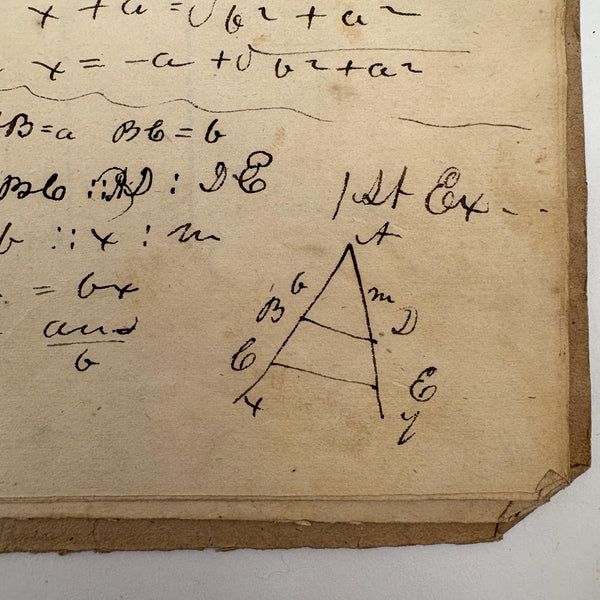 x + a = √b² + a²
x = -a + √b² + a²
B = a BC = b
BC :: AD : DE
b :: x : m
= bx
am
b
1st Ex - -
A
b m
B D
C E
x y